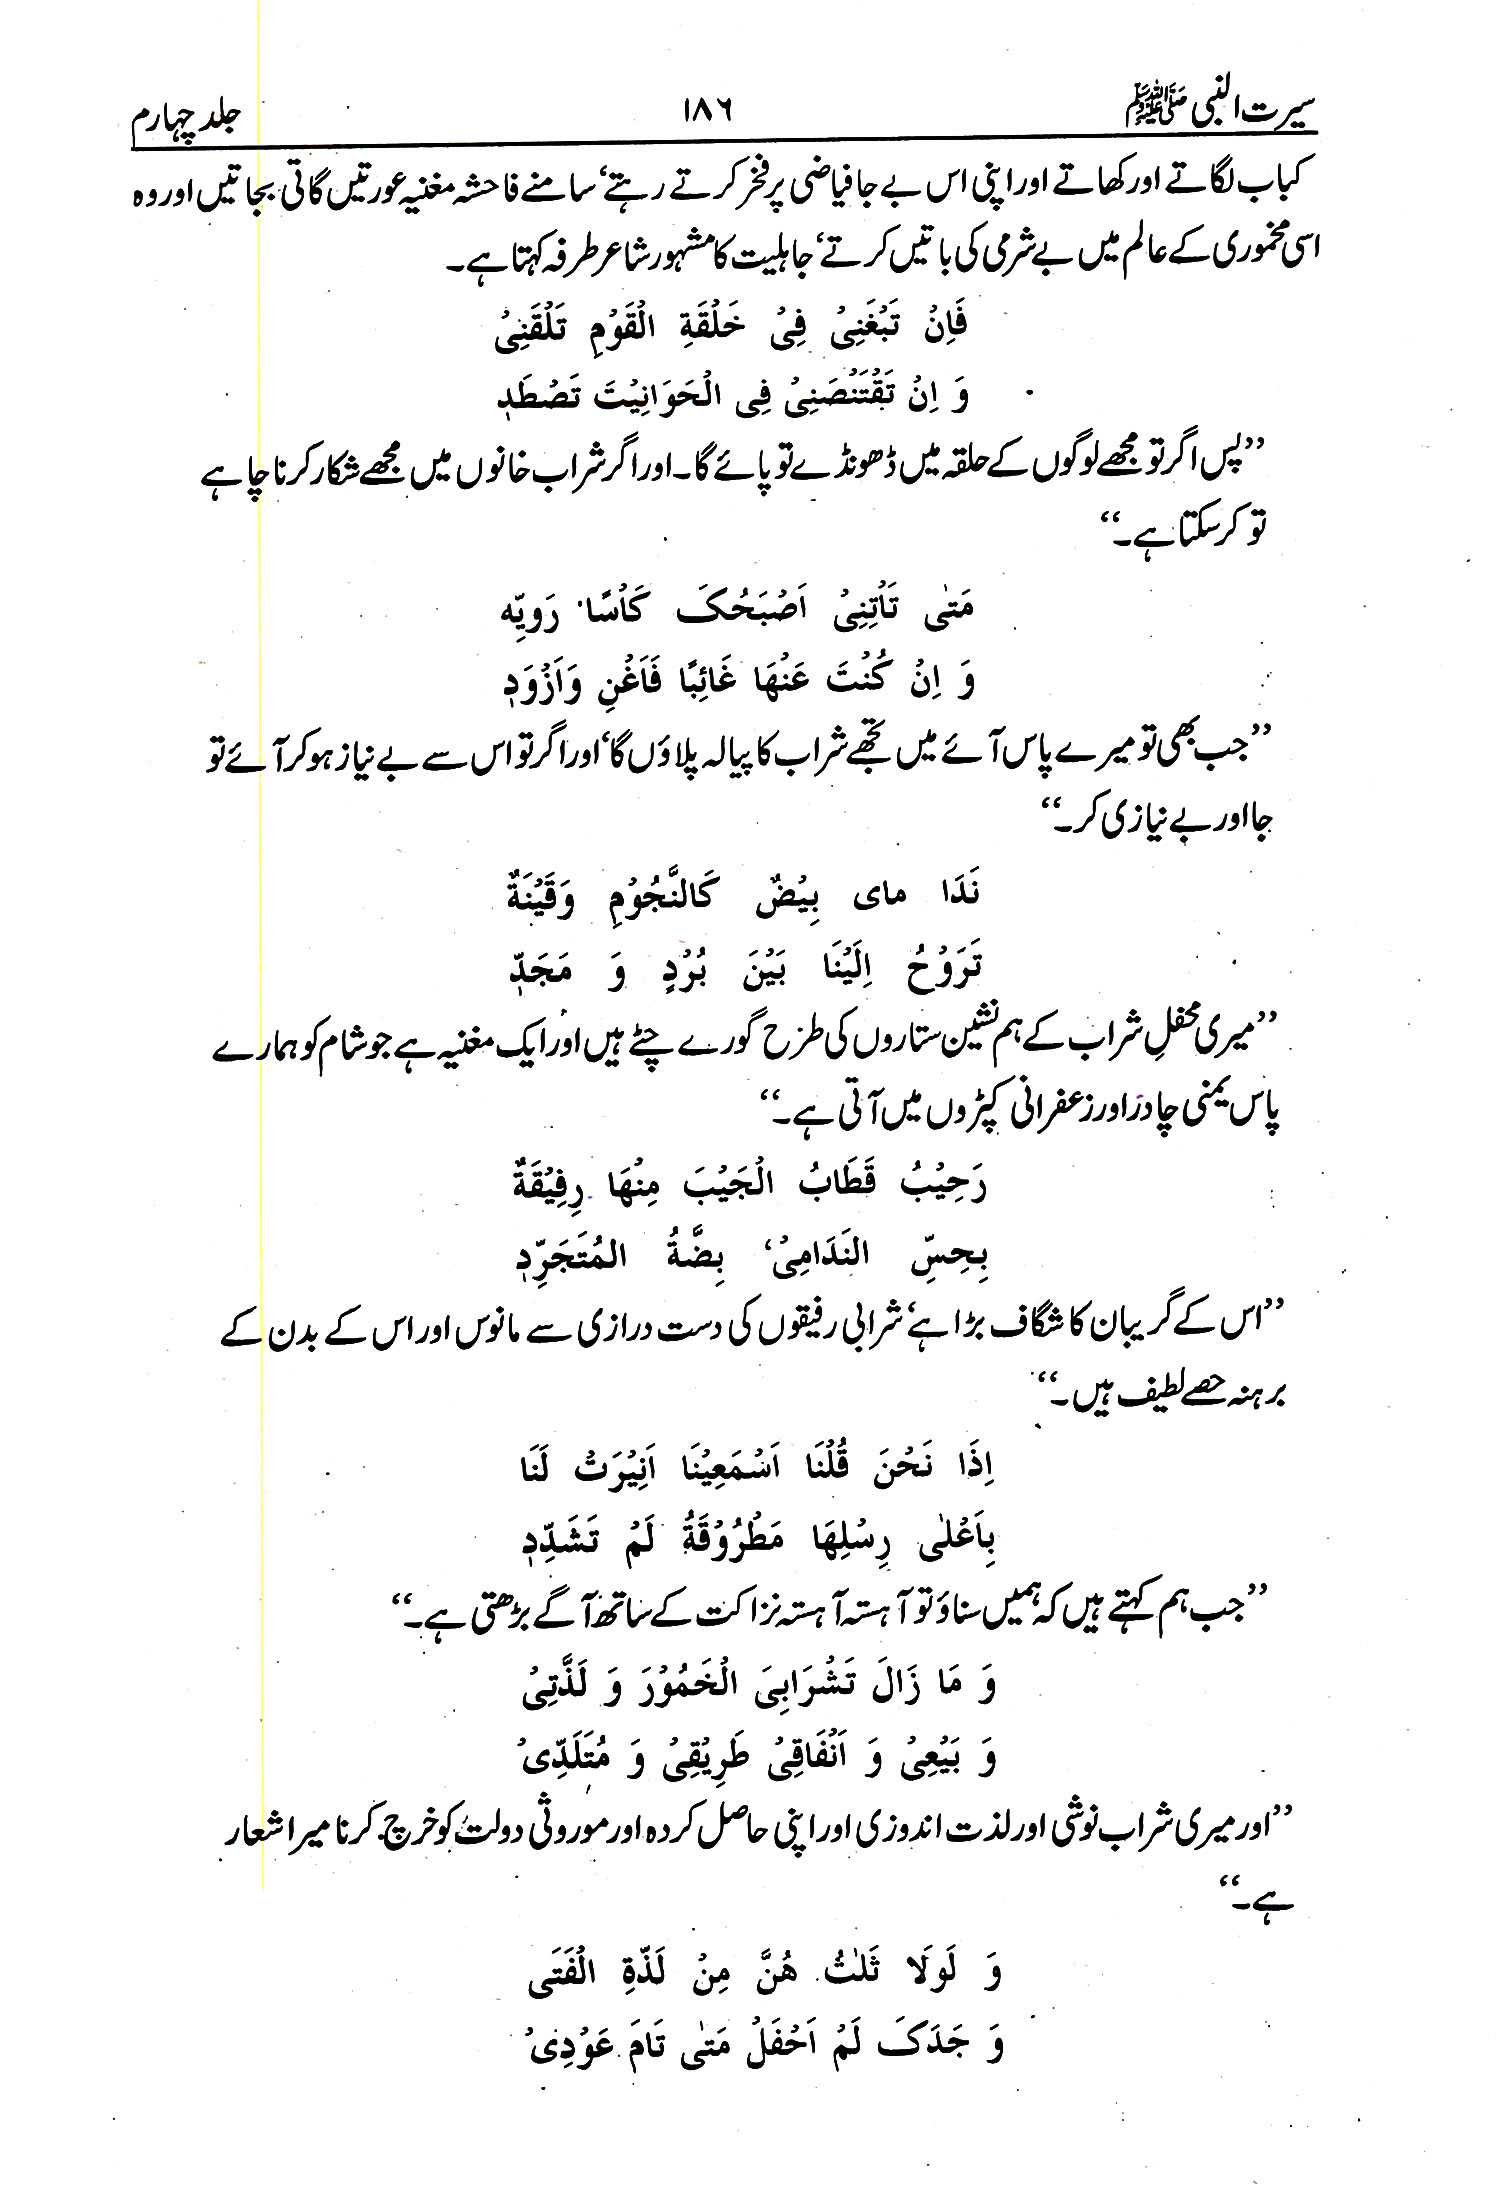 سیرت النبی ﷺ ۱۸۶ جلد چہارم
کباب لگاتے اور کھاتے اور اپنی اس بے جا فیاضی پر فخر کرتے رہتے‘ سامنے فاحشہ مغنیہ عورتیں گاتی بجاتیں اور وہ
اسی مخموری کے عالم میں بے شرمی کی باتیں کرتے‘ جاہلیت کا مشہور شاعر طرفہ کہتا ہے۔
فَاِنْ تَبْغَنِیْ فِیْ حَلْقَةِ الْقَوْمِ تَلْقَنِیْ
وَ اِنْ تَقْتَنْصَنِیْ فِی الْحَوَانِیْتَ تَصْطَدٖ
’’پس اگر تو مجھے لوگوں کے حلقہ میں ڈھونڈے تو پائے گا۔ اور اگر شراب خانوں میں مجھے شکار کرنا چاہے
تو کر سکتا ہے۔‘‘
مَتٰی تَاْتِنِیْ اَصْبَحُکَ کَاْسًا رَوِیّه
وَ اِنْ کُنْتَ عَنْهَا غَائِبًا فَاَغْنِ وَاَزْوَدٖ
’’جب بھی تو میرے پاس آئے میں تجھے شراب کا پیالہ پلاؤں گا‘ اور اگر تو اس سے بے نیاز ہو کر آئے تو
جا اور بے نیازی کر۔‘‘
نَدَا مای بِیْضٌ کَالنَّجُوْمِ وَقَیْنَةٌ
تَرَوْحُ اِلَیْنَا بَیْنَ بُرْدٍ وَ مَجَدّٖ
’’میری محفلِ شراب کے ہم نشین ستاروں کی طرح گورے چٹے ہیں اور ایک مغنیہ ہے جو شام کو ہمارے
پاس یمنی چادر اور زعفرانی کپڑوں میں آتی ہے۔‘‘
رَحِیْبُ قَطَابُ الْجَیْبَ مِنْهَا رِفِیْقَةٌ
بِحِسِّ النَدَامِیْ‘ بِضَّةُ المُتَجَرِّدٖ
’’اس کے گریبان کا شگاف بڑا ہے‘ شرابی رفیقوں کی دست درازی سے مانوس اور اس کے بدن کے
برہنہ حصے لطیف ہیں۔‘‘
اِذَا نَحْنَ قُلْنَا اَسْمَعِیْنَا اَنِیْرَتْ لَنَا
بِاَعْلٰی رِسْلِهَا مَطْرُوْقَةُ لَمْ تَشَدِّدٖ
’’جب ہم کہتے ہیں کہ ہمیں سناؤ تو آہستہ آہستہ نزاکت کے ساتھ آگے بڑھتی ہے۔‘‘
وَ مَا زَالَ تَشْرَابِیَ الْخَمُوْرَ وَ لَذَّتِیْ
وَ بَیْعِیْ وَ اَنْفَاقِیْ طَرِیْقِیْ وَ مُتَلَدِّیْ
’’اور میری شراب نوشی اور لذت اندوزی اور اپنی حاصل کردہ اور موروثی دولت کو خرچ کرنا میرا شعار
ہے۔‘‘
وَ لَولَا ثَلٰثُ هُنَّ مِنْ لَذَّةِ الْفَتَی
وَ جَدَکَ لَمْ اَحْفَلْ مَتٰی تَامَ عَوْدِیْ